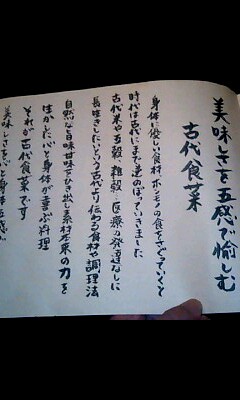 美味しさを五感で愉しむ
古代食菜
身体に優しい食材、ホンモノの食をさぐっていくと
時代は古代にまで逆のぼっていきました
古代米や五穀、雑穀、医療の発達なしに
長生きしたいという古代より伝わる食材や調理法
自然な旨味甘味をひき出し素材本来の力を
生かした心と身体が喜ぶ料理
それが古代食菜です
美味しさを心と身体五感で